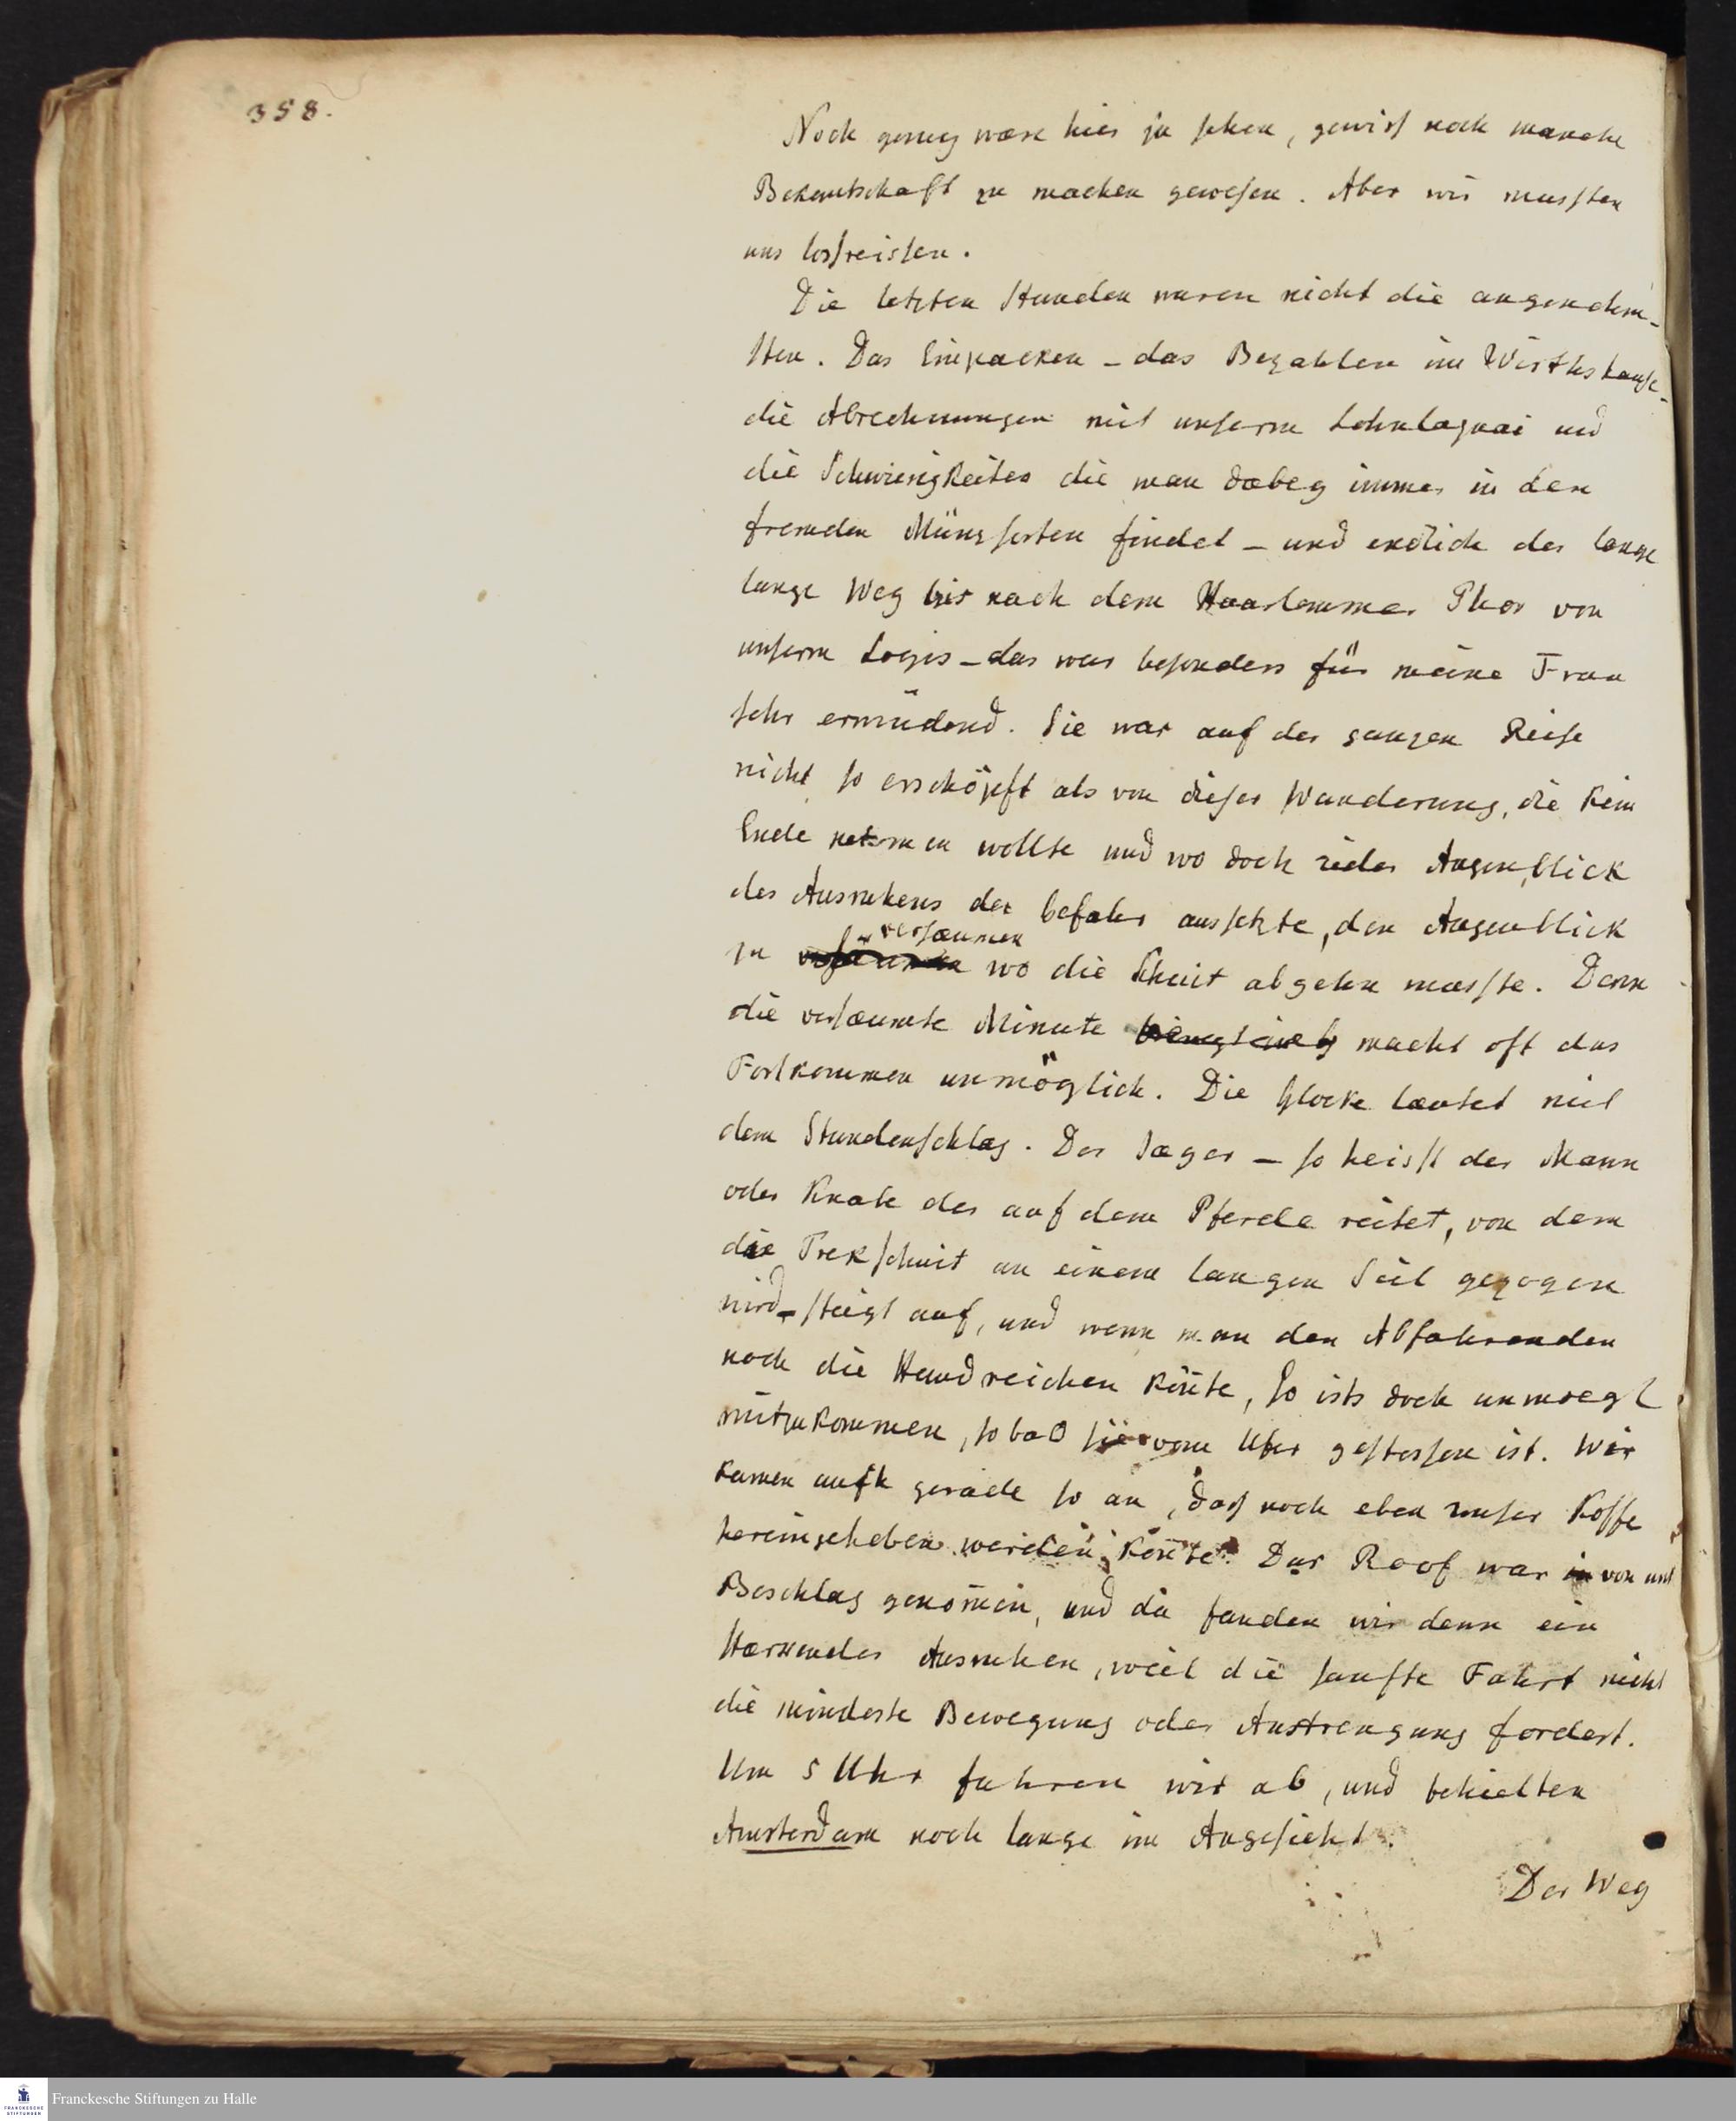 358.
Noch genug wäre hier zu sehen, gewiss noch manche
Bekanntschaft zu machen gewesen. Aber wir mussten
uns losreissen.
Die letzten Stunden waren nicht die angenehm-
sten. Das Einpacken – das Bezahlen im Wirthshause –
die Abrechnungen mit unserm Lohnlaquai und
die Schwierigkeiten die man dabey immer in den
fremden Münzsorten findet – und endlich der lange
lange Weg bis nach dem Haarlemmer Thor von
unserm Logis – das war besonders für meine Frau
sehr ermüdend. Sie war auf der ganzen Reise
nicht so erschöpft als von dieser Wanderung, die kein
Ende nehmen wollte und wo doch jeder Augenblick
des Ausruhens der Gefahr aussetzte, den Augenblick
zu versæumen wo die Schuit abgehn musste. Denn
die versæumte Minute macht oft das
Fortkommen unmöglich. Die Glocke læutet mit
dem Stundenschlag. Der Jæger – so heisst der Mann
oder Knabe der auf dem Pferde reitet, von dem
die Trekschuit an einem langen Seil gezogen
wird – steigt auf, und wenn man den Abfahrenden
noch die Hand reichen könte, so ists doch unmoegl
mitzukommen, so bald sie vom Ufer gestossen ist. Wir
kamen auch gerade so an, dass noch eben unser Koffe
hereingehoben werden konte. Der Roof war von uns
Beschlag genom̄en, und da fanden wir denn ein
stærkendes Ausruhen, weil die sanfte Fahrt nicht
die mindeste Bewegung oder Anstrengung fordert.
Um 5 Uhr fuhren wir ab, und behielten
Amsterdam noch lange im Angesicht.
Der Weg
Franckesche Stiftungen zu Halle
FRANCKESCHE
STIFTUNGEN